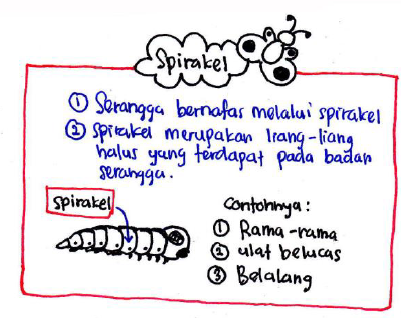 Spirakel
① Serangga bernafas melalui spirakel
② Spirakel merupakan liang-liang
halus yang terdapat pada badan
serangga.
spirakel
Contohnya:
① Rama-rama
② ulat beluncas
③ Belalang